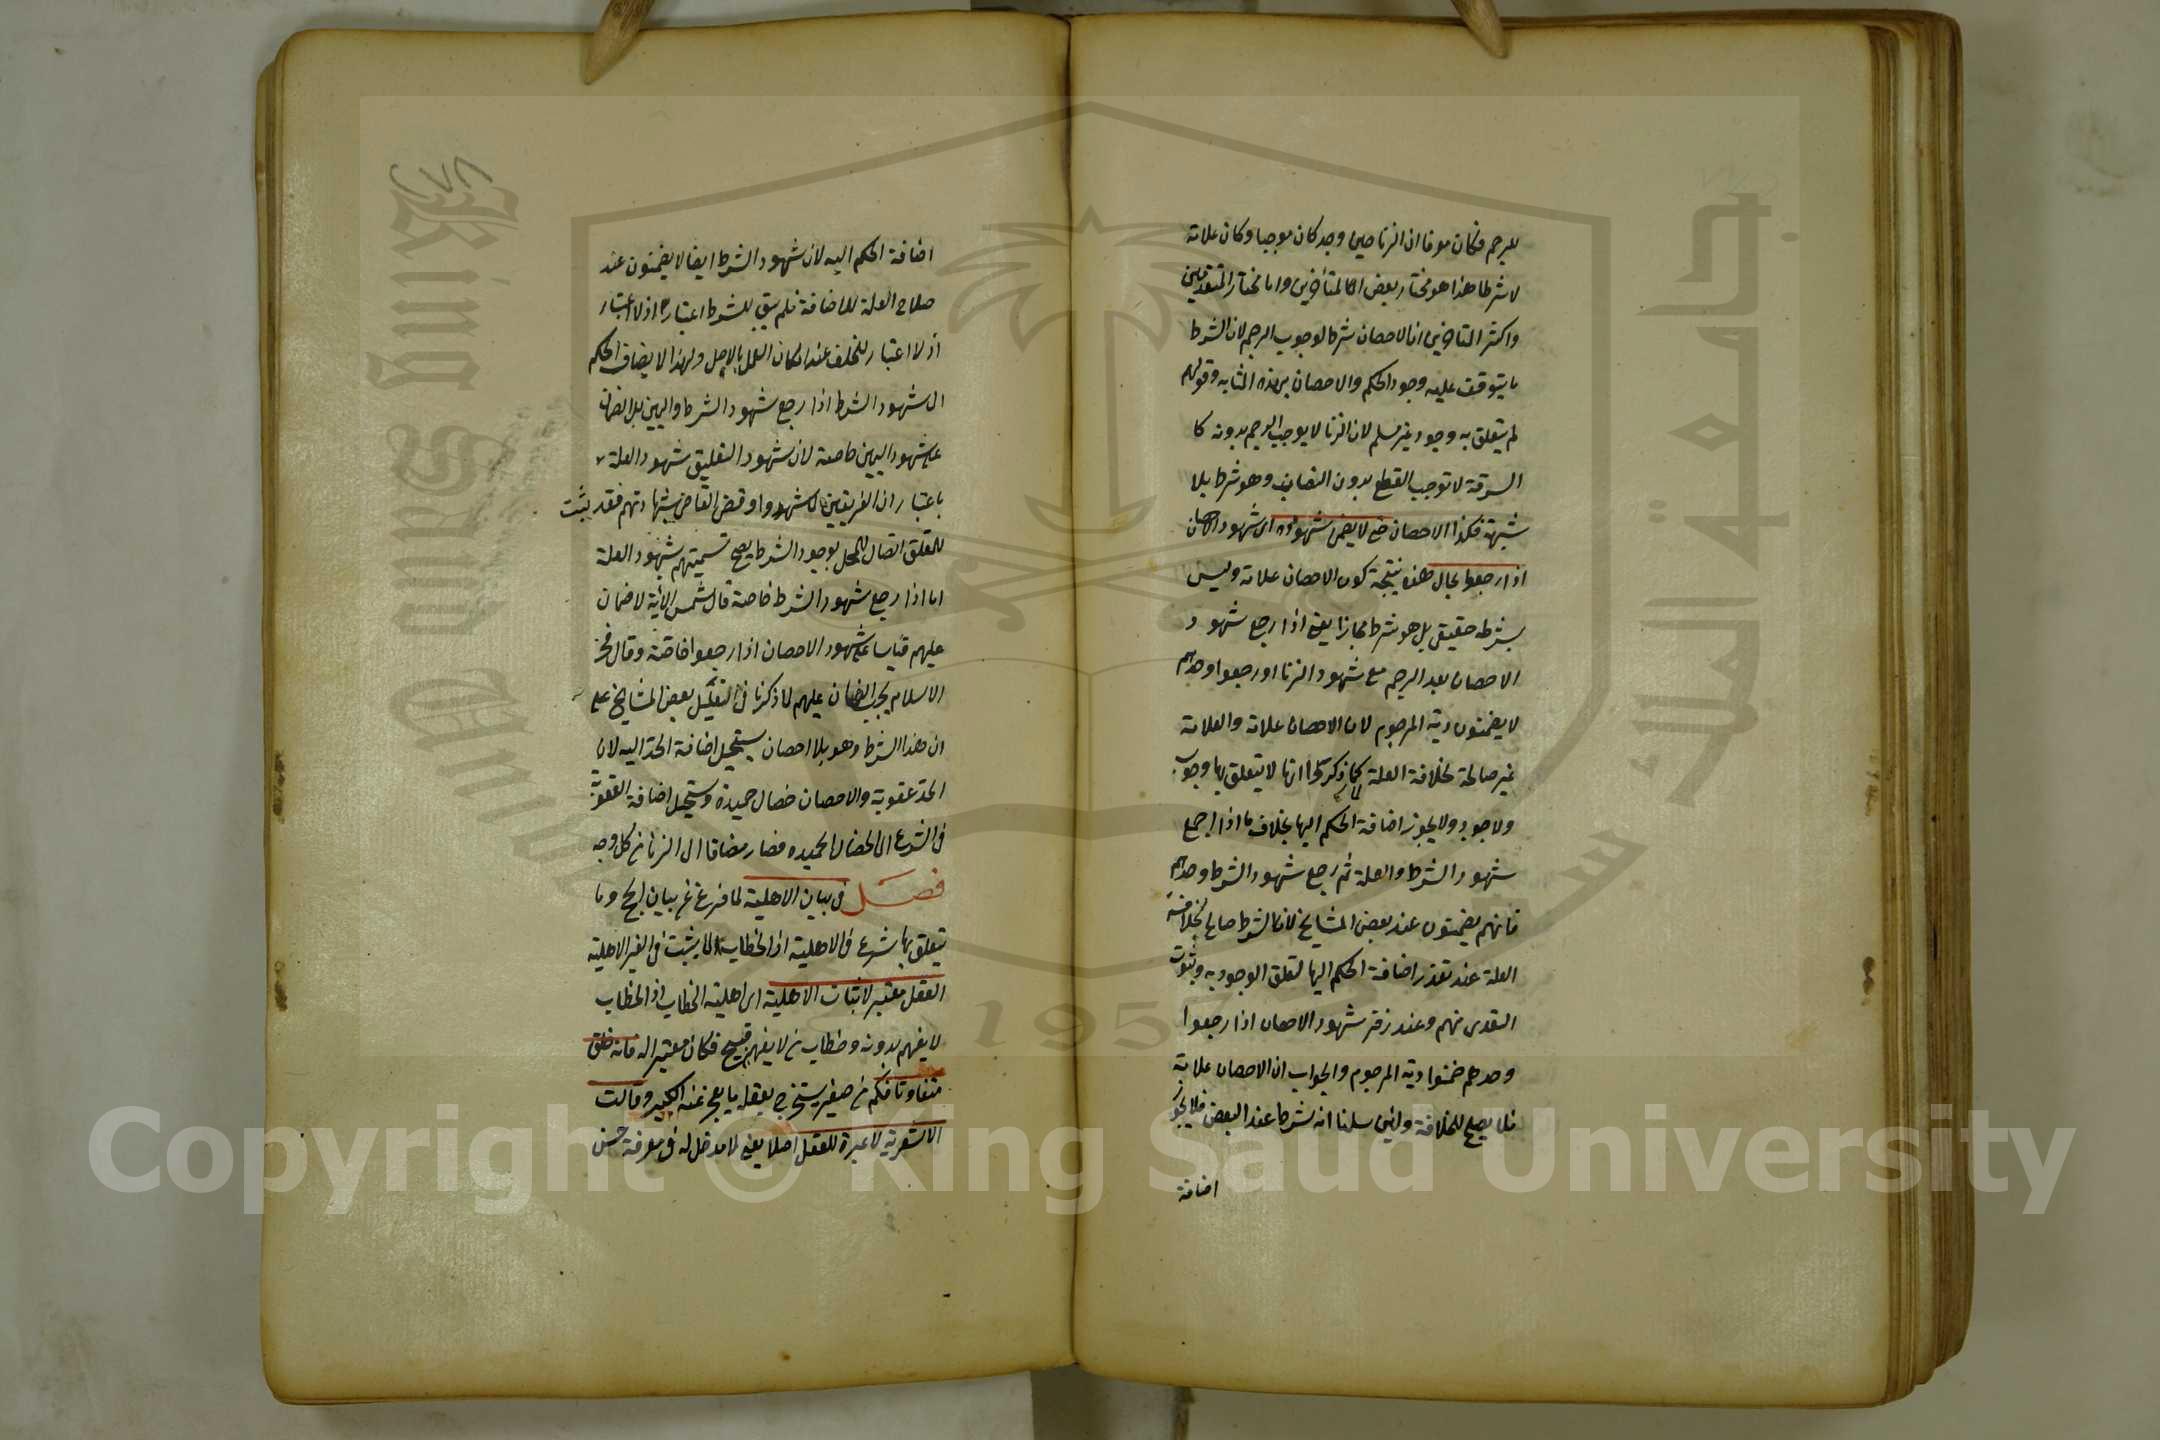 للرجم فكان معرفا ان الزنا حين وجد كان موجبا وكان علامة
لا شرطا هذا هو مختار بعض المتأخرين واما مختار المتقدمين
واكثر المتاخرين ان الاحصان شرط لوجوب الرجم لان الشرط
ما يتوقف عليه وجود الحكم والاحصان بهذه المثابه وقولهم
لم يتعلق به وجود غير مسلم لان الزنا لا يوجب الرجم بدونه كا
السرقة لا توجب القطع بدون النصاب وهو شرط بلا
شبهة فكذا الاحصان حتى لا يضمن شهوده اى شهود الاحصان
اذا رجعوا بحال هذه نتيجة كون الاحصان علامة وليس
بشرط حقيقى بل هو شرط مجازا يعنى اذا رجع شهود
الاحصان بعد الرجم مع شهود الزنا او رجعوا وحدهم
لا يضمنون دية المرجوم لان الاحصان علامة والعلامة
غير صالحة لخلافة العلة لما ذكرنا انها لا يتعلق بها وجوب
ولا وجود ولا يجوز اضافة الحكم اليها بخلاف ما اذا اجمع
شهود الشرط والعلة ثم رجع شهود الشرط وحدهم
فانهم يضمنون عند بعض المشايخ لان الشرط صالح لخلافة
العلة عند تعذر اضافة الحكم اليها لتعلق الوجود به وثبوت
التعدى منهم وعند زفر شهود الاحصان اذا رجعوا
وحدهم ضمنوا دية المرجوم والجواب ان الاحصان علامة
فلا يصلح للخلافة ولئن سلمنا انه شرط عند البعض فلا يجوز
اضافة
اضافة الحكم اليه لان شهود الشرط ايضا لا يضمنون عند
صلاح العلة للاضافة فلم يبق للشرط اعتبار اذ لا اعتبار
اذ لا اعتبار للخلف عند امكان العمل بالاصل ولهذا لا يضاف الحكم
الى شهود الشرط اذا رجع شهود الشرط واليمين بل الضمان
على شهود اليمين خاصة لان شهود التعليق شهود العلة
باعتبار ان الفريقين لما شهدوا وقضى القاضى بشهادتهم فقد يثبت
للمعلق اتصال بالمحل بوجود الشرط يصح تسميتهم شهود العلة
اما اذا رجع شهود الشرط خاصة قال شمس الائمة لا ضمان
عليهم قياسا على شهود الاحصان اذا رجعوا خاصة وقال فخر
الاسلام يجب الضمان عليهم لما ذكرنا فى التعليل بعض المشايخ على
ان هذا الشرط وهو بلا احصان يستحيل اضافة الحد اليه لان
الحد عقوبة والاحصان خصال حميدة ويستحيل اضافة العقوبة
فى الشرع الى الخصال الحميده فصار مضافا الى الزنا من كل وجه
فصل فى بيان الاهلية لما فرغ عن بيان الحج وما
يتعلق بها شرع فى الاهلية اذ الخطاب لا يثبت فى الغير الاهلية
العقل معتبر لاثبات الاهلية اى اهلية الخطاب اذ الخطاب
لا يفهم بدونه وخطاب من لا يفهم قبيح فكان معتبرا له فانه خلق
متفاوتا فكم من صغير يستخرج بعقله ما يعجز عنه الكبير وقالت
الاشعرية لا عبرة للعقل اصلا يعنى لا مدخل له فى معرفة حسن
King Saud University
جامعة الملك سعود
1957
Copyright © King Saud University